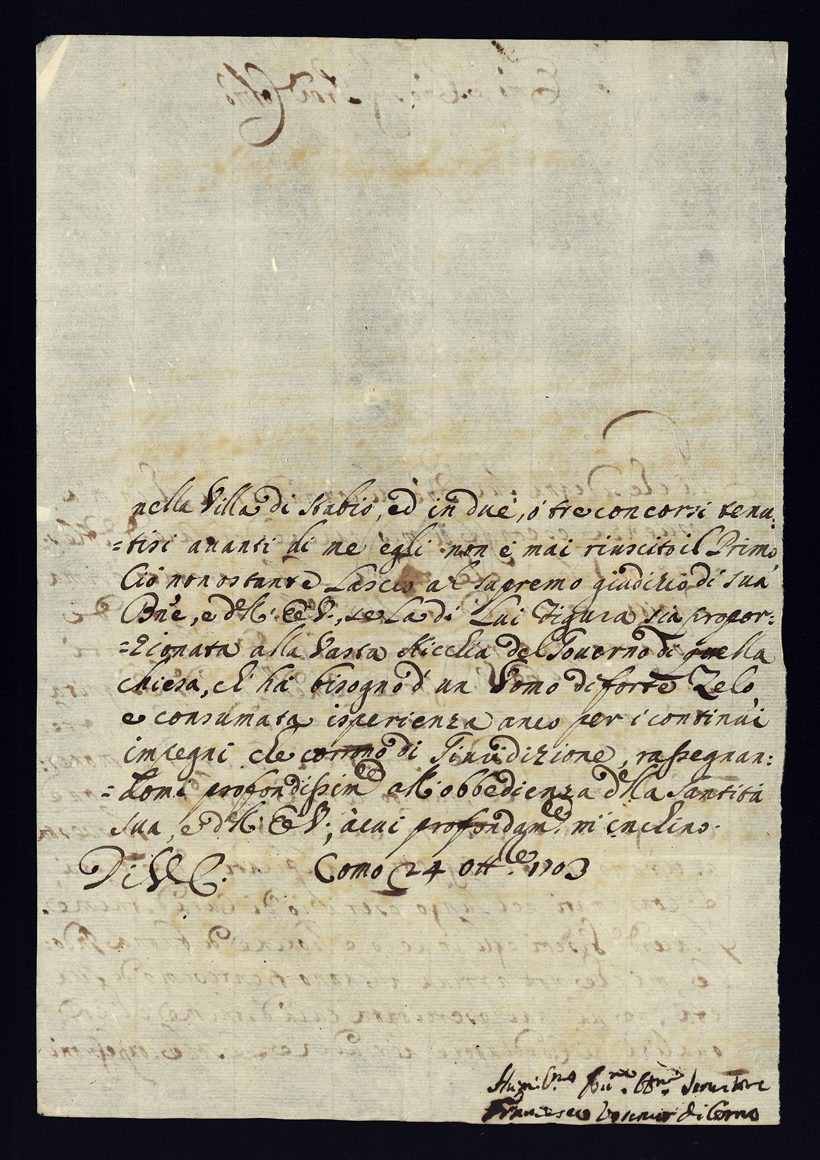 nella Villa di Stabio, ed in due, o tre concorsi tenu:
=tisi auanti di me egli non è mai riuscito il Primo
Ciò non ostante Lascio al supremo giudizio di sua
Bnè, e dll' E V., se La di Lui Figura sia propor:
=zionata alla Vasta Nicchia del Gouerno di quella
chiesa, ch' hà bisogno d' un Vomo di forte Zelo,
e consumata isperienza anco per i continui
impegni che corrono di Giurisdizione, rassegnan:
=domi profondissim.te all'obbedienza dlla Santità
sua, e dll' E V., à cui profondam.te m'inchino.
Di V E. Como 24 Ott.e 1703
Humil.mo Seruitore
Francesco Vescouo di Como